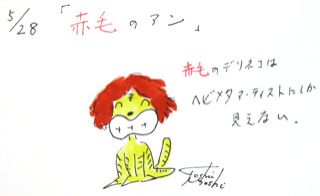 5/28 「赤毛のアン」
赤毛のデリネコは
ヘビメタアーティストにしか
見えない。
Yoshi
Yoshi